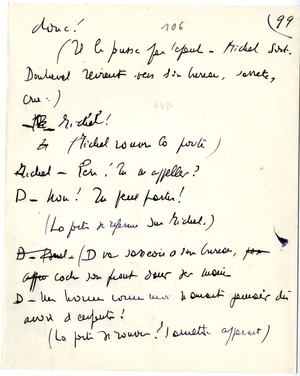 donc! 106 (99
(Il le pousse par l'épaule - Michel sort.
Douhevel revient vers son bureau, s'arrête,
crie:)
Michel!
(Michel rouvre la porte)
Michel - Père! Tu m'appelles?
D - Non! Tu peux partir!
(La porte se referme sur Michel.)
D - (D va s'asseoir à son bureau,
cache son front dans ses mains
D - Un homme comme moi n'aurait jamais dû
avoir d'enfants!
(La porte se rouvre! apparaît)